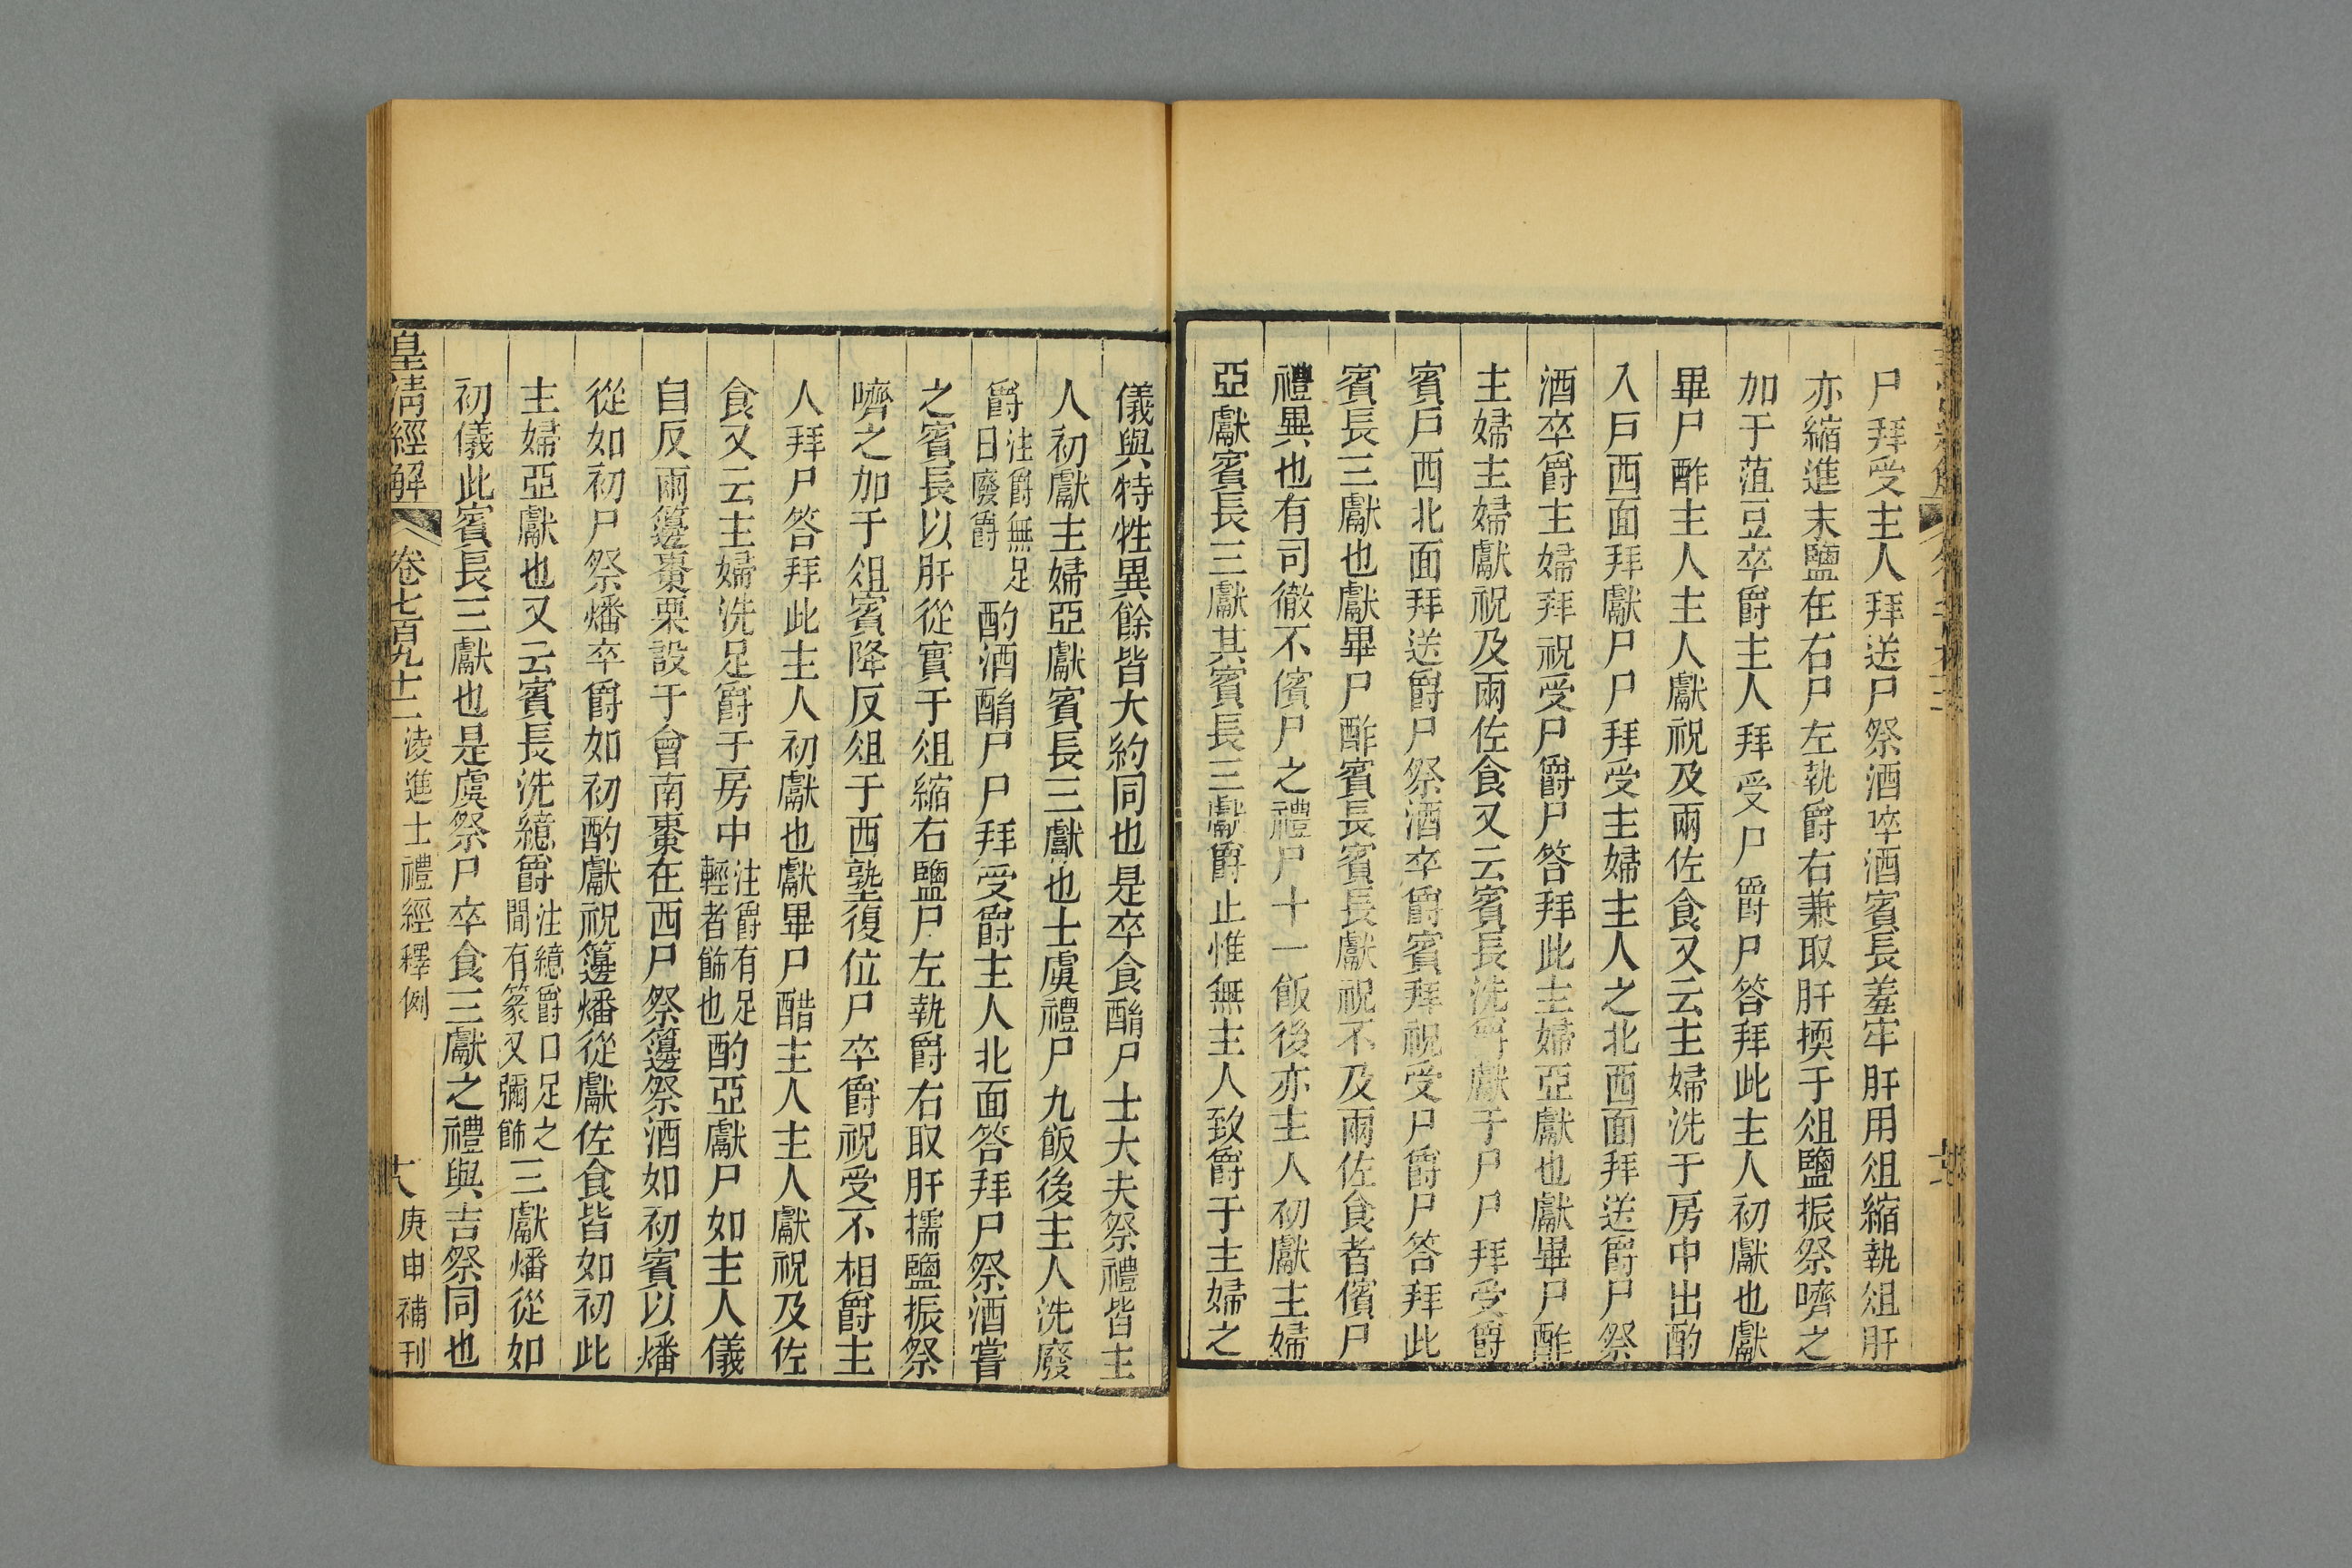 尸拜受主人拜送尸祭酒啐酒賓長羞牢肝用俎縮執俎肝
亦縮進末鹽在右尸左執爵右兼取肝㨎于俎鹽振祭嚌之
加于菹豆卒爵主人拜受尸爵尸答拜此主人初獻也獻
畢尸酢主人主人獻祝及兩佐食又云主婦洗于房中出酌
入戶西面拜獻尸尸拜受主婦主人之北西面拜送爵尸祭
酒卒爵主婦拜祝受尸爵尸答拜此主婦亞獻也獻畢尸酢
主婦主婦獻祝及兩佐食又云賓長洗爵獻于尸尸拜受爵
賓戶西北面拜送爵尸祭酒卒爵賓拜祝受尸爵尸答拜此
賓長三獻也獻畢尸酢賓長賓長獻祝不及兩佐食者儐尸
禮異也有司徹不儐尸之禮尸十一飯後亦主人初獻主婦
亞獻賓長三獻其賓長三獻爵止惟無主人致爵于主婦之
儀與特牲異餘皆大約同也是卒食酳尸士大夫祭禮皆主
人初獻主婦亞獻賓長三獻也士虞禮尸九飯後主人洗廢
爵注爵無足曰廢爵酌酒酳尸尸拜受爵主人北面答拜尸祭酒嘗
之賓長以肝從實于俎縮右鹽尸左執爵右取肝擩鹽振祭
嚌之加于俎賓降反俎于西塾復位尸卒爵祝受不相爵主
人拜尸答拜此主人初獻也獻畢尸醋主人主人獻祝及佐
食又云主婦洗足爵于房中注爵有足輕者飾也酌亞獻尸如主人儀
自反兩籩棗栗設于會南棗在西尸祭籩祭酒如初賓以燔
從如初尸祭燔卒爵如初酌獻祝籩燔從獻佐食皆如初此
主婦亞獻也又云賓長洗繶爵注繶爵口足之間有篆又彌飾三獻燔從如
初儀此賓長三獻也是虞祭尸卒食三獻之禮與吉祭同也
皇清經解 卷七百九十二 淩進士禮經釋例 十八 庚申補刊